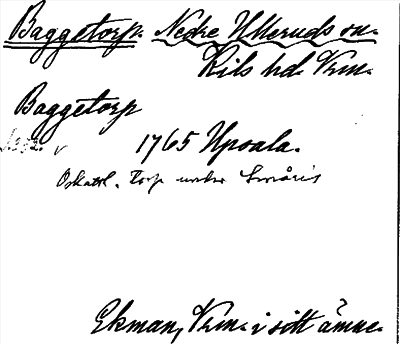 Baggetorp. Nedre Ulleruds sn.
Kils hd. Vrm.
Baggetorp
1765 Upsala.
Oskattl. Torp under Småris
Ekman, Vrm. i sitt ämne.